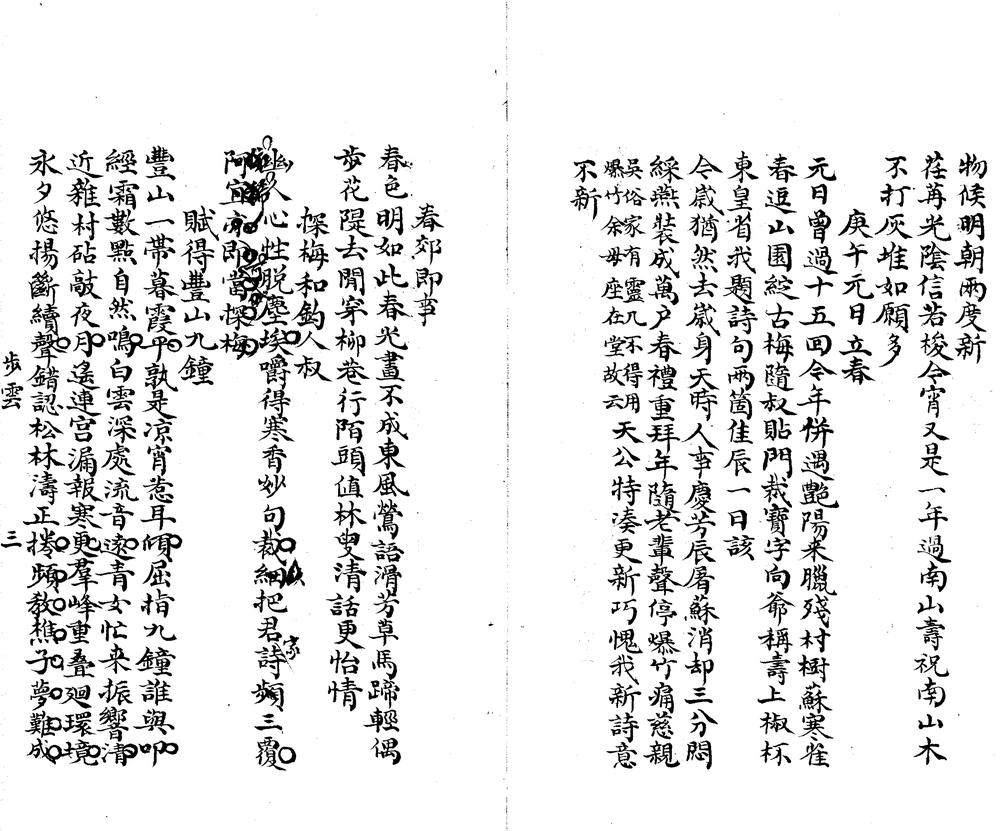 物候明朝兩度新
荏苒光陰信若梭今宵又是一年過南山壽祝南山木
不打灰堆如願多
庚午元日立春
元日曾過十五回今年併遇艷陽來臘殘村樹蘇寒雀
春逗山園綻古梅隨叔貼門裁寶字向爺稱壽上椒杯
東皇省我題詩句兩箇佳辰一日該
令歲猶然去歲身天時人事慶芳辰屠蘇消却三分悶
綵燕裝成萬户春禮重拜年隨老輩聲停爆竹痛慈親
吳俗家有靈几不得用
爆竹余母座在堂故云
天公特湊更新巧愧我新詩意
不新
春郊即事
春色明如此春光畫不成東風鶯語滑芳草馬蹄輕偶
步花隄去閒穿柳巷行陌頭值林叟清話更怡情
探梅和鈞人叔
幽人心性脱塵埃嚼得寒香妙句裁細把君詩頻三覆
阿宜亦即當探梅
賦得豐山九鐘
豐山一帶暮霞平孰是凉宵惹耳傾屈指九鐘誰與叩
經霜數點自然鳴白雲深處流音遠青女忙來振響清
近雜村砧敲夜月遙連宫漏報寒更羣峰重叠廻環境
永夕悠揚斷續聲錯認松林濤正捲頻教樵子夢難成
步雲
三